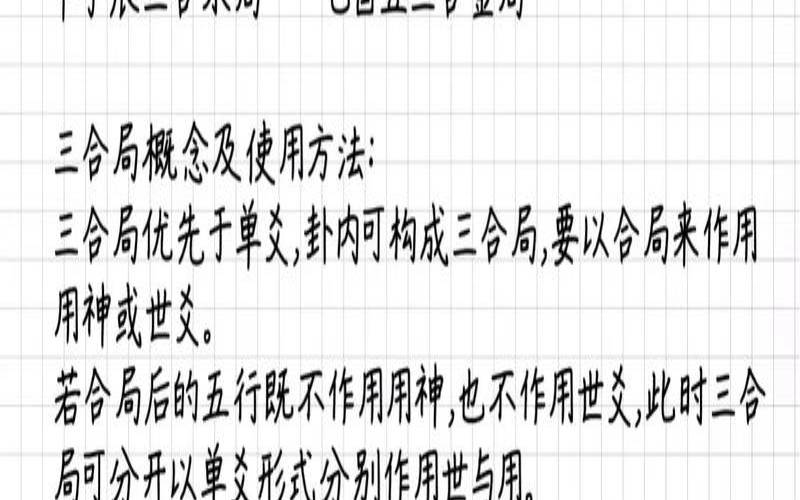 三合局概念及使用方法:
三合局优先于单爻,卦内可构成三合局,要以合局来作用
用神或世爻。
若合局后的五行既不作用用神,也不作用世爻,此时三合
局可分开以单爻形式分别作用世与用。